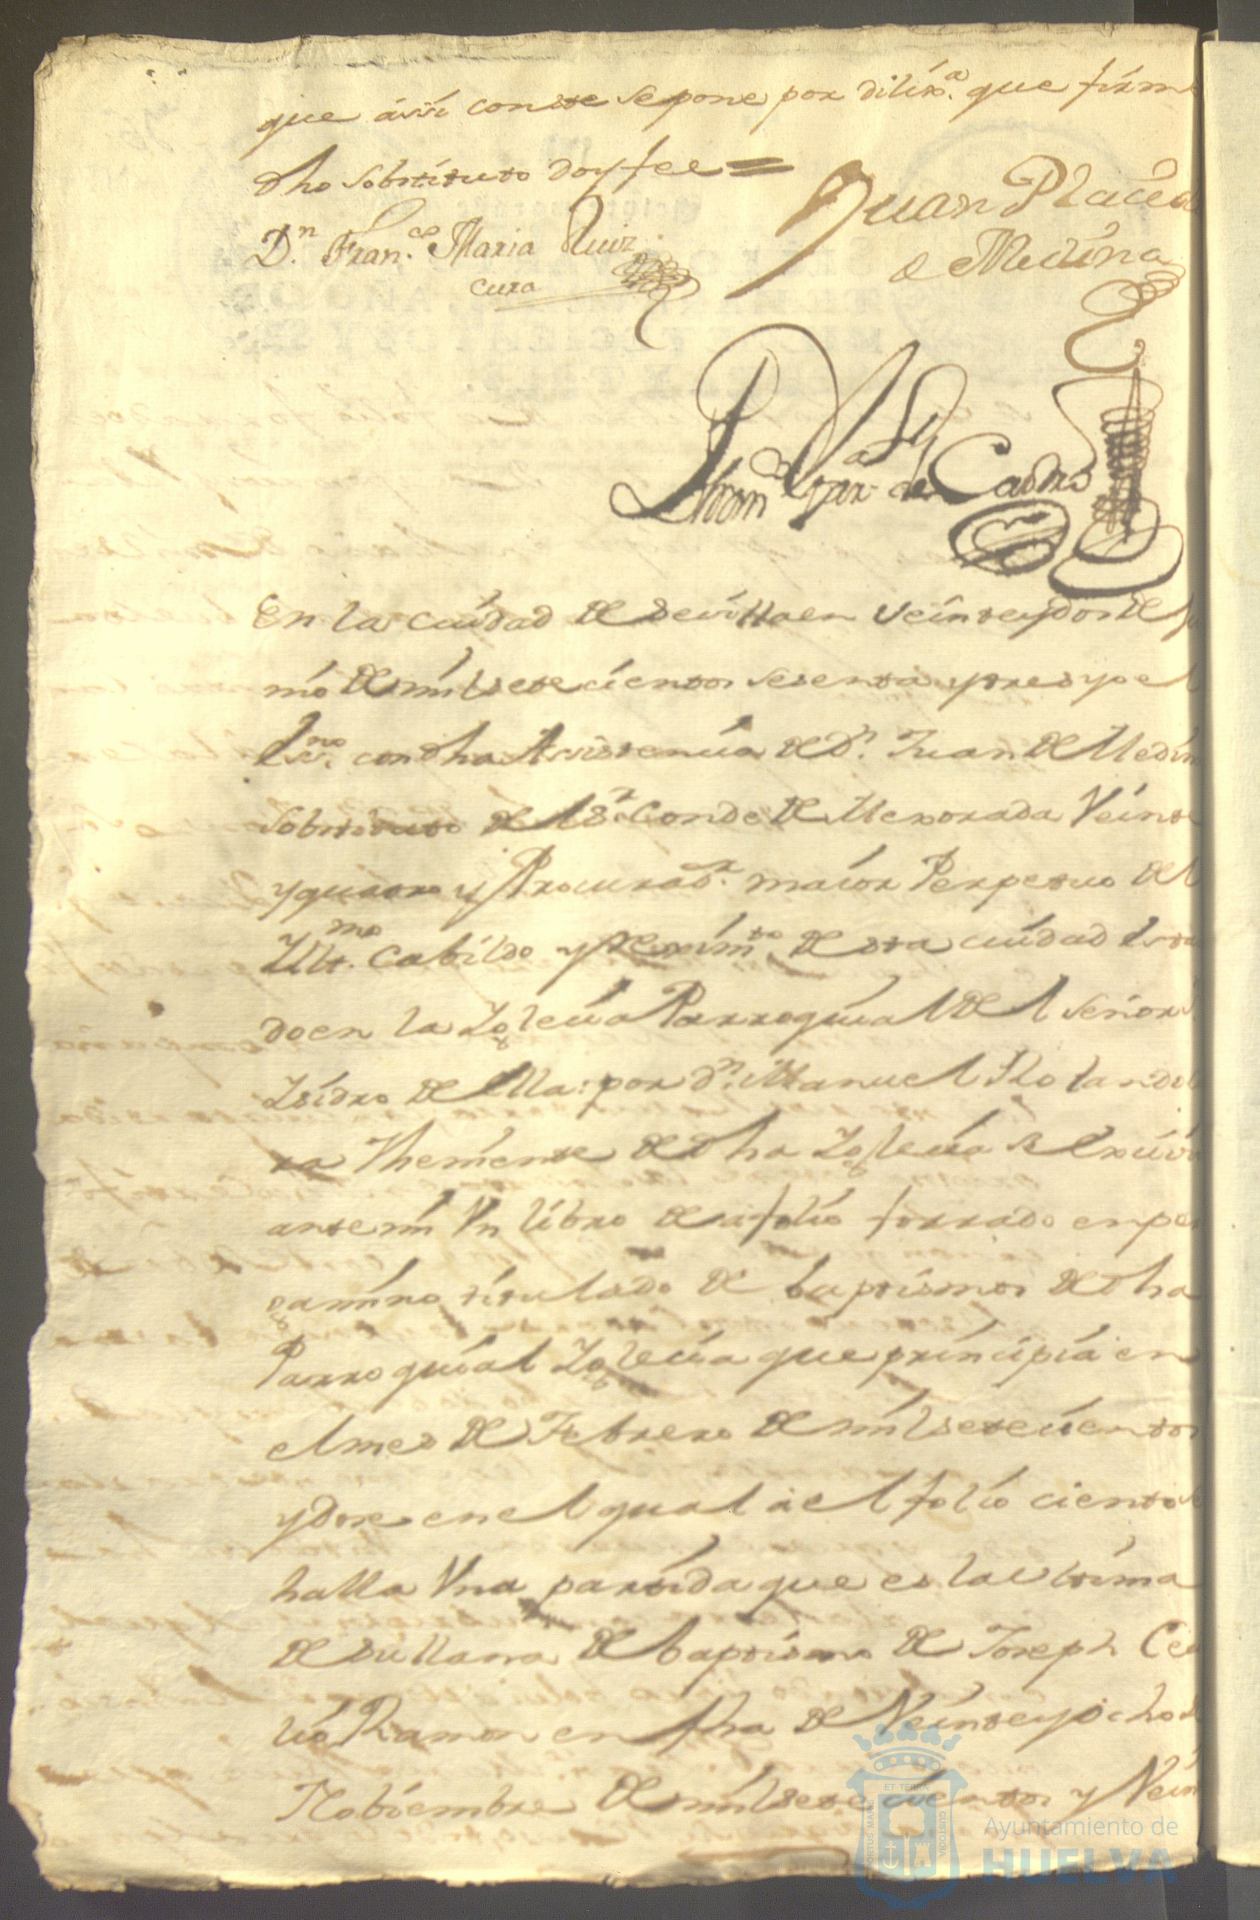 que assi conste se pone por dilix.ª que firm
dho sobstituto doy fee =
Juan Placido
de Medina
D.n Fran.co Maria Ruiz
cura
Fran.co de Castro
En la ciudad de sevilla en veinte y dos de Ju
nio de mil setecientos sesenta y tres yo el
Ess.no con dha Assistencia de D.n Juan de Medin
sobstituto del S.r Conde de Mexorada Veinte
y quatro y Procurad.r maior Perpetuo del
Ill.mo Cabildo y Rexim.to de esta ciudad esta
do en la Iglecia Parroquial del señor S
Isidro de ella: por d.n Manuel
Theniente de dha Iglecia se exivi
ante mi Vn libro de a folio forrado en per
gamino titulado de baptismos de dha
Parroquial Iglecia que principia en
el mes de Febrero de mil setecientos
y dose en el qual a el folio ciento
halla Vna partida que es la vltima
de su llana de baptismo de Joseph Ceci
lio Ramon en fha de Veinte y ocho d
Nobiembre de mil setecientos y Vein
Ayuntamiento de
HUELVA